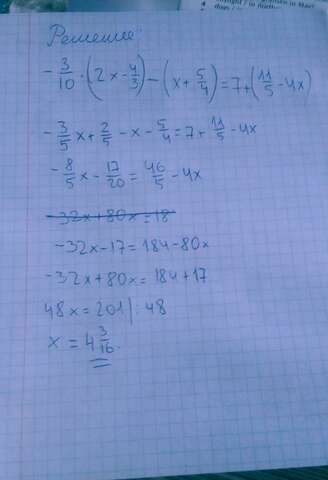 Решение:
-3/10·(2x-4/3)-(x+5/4)=7+(11/5-4x)
-3/5x+2/5-x-5/4=7+11/5-4x
-8/5x-17/20=46/5-4x
-32x+80x=18
-32x-17=184-80x
-32x+80x=184+17
48x=201|:48
x=4 3/16.